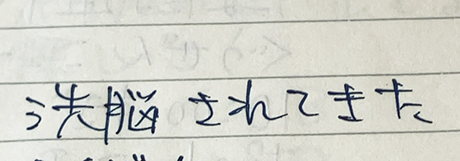 洗脳されてきた